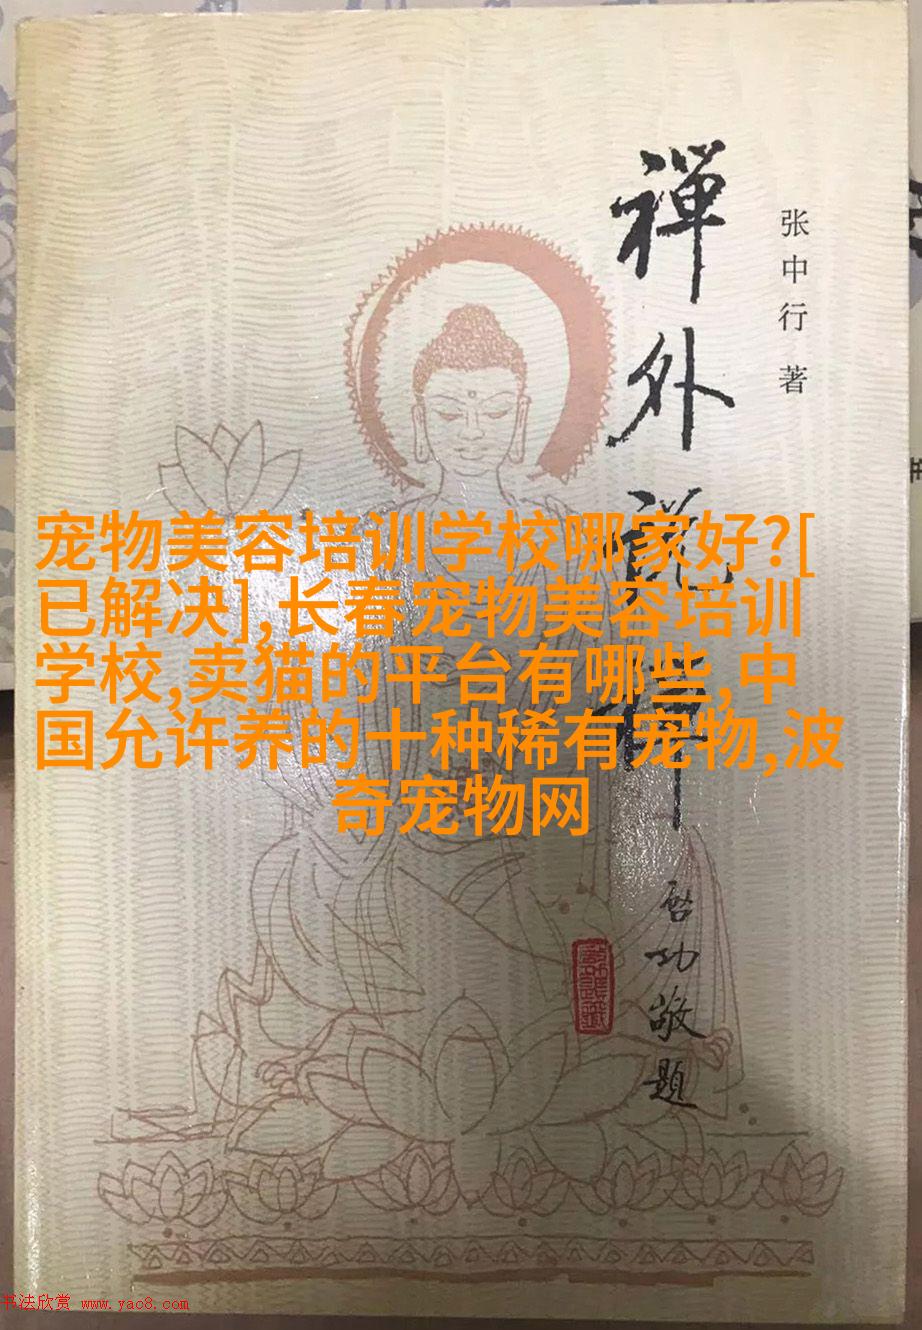 禅外说禅
张中行 著
宠物美容培训学校哪家好?[
已解决],长春宠物美容培训
学校,卖猫的平台有哪些,中
国允许养的十种稀有宠物,波
奇宠物网
启功敬题
书法欣赏 www.yac8.com